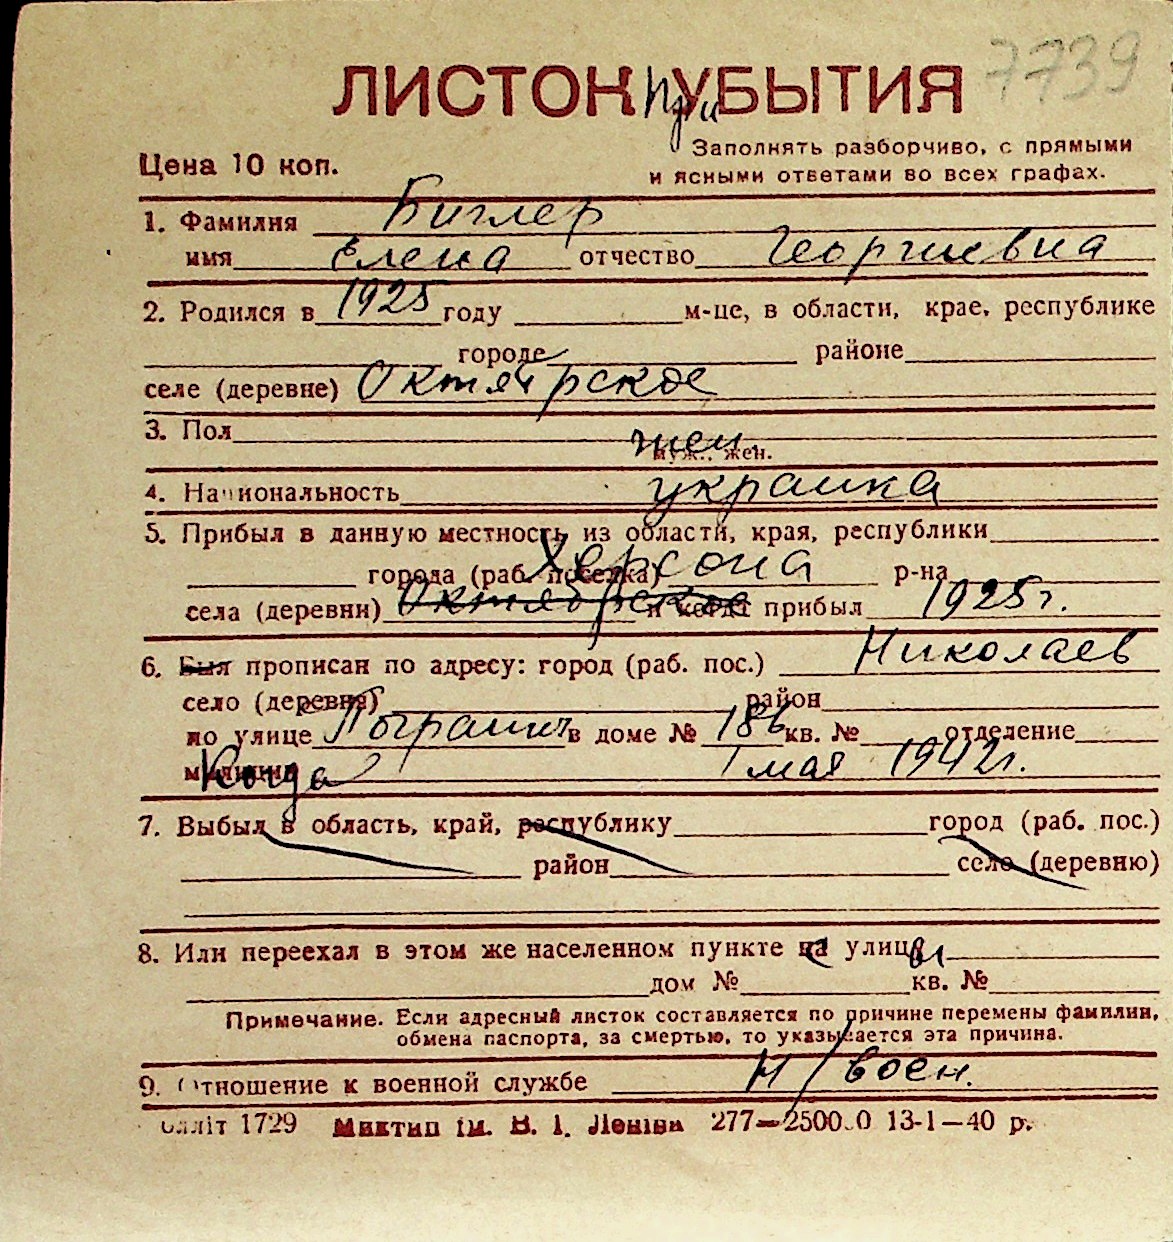 7739
ЛИСТОК При УБЫТИЯ
Цена 10 коп.
Заполнять разборчиво, с прямыми
и ясными ответами во всех графах.
1. Фамилия Биглер
имя Елена отчество Георгиевна
2. Родился в 1925 году м-це, в области, крае, республике
городе районе
селе (деревне) Октябрское
3. Пол жен.
муж., жен.
4. Национальность украинка
5. Прибыл в данную местность из области, края, республики
города (раб. поселка) Херсона р-на
села (деревни) Октябрское и когда прибыл 1925 г.
6. Был прописан по адресу: город (раб. пос.) Николаев
село (деревня) район
по улице Погранич в доме № 186 кв. № отделение
милиции Когда 1 мая 1942 г.
7. Выбыл в область, край, республику город (раб. пос.)
район село (деревню)
8. Или переехал в этом же населенном пункте на улицу
дом № кв. №
Примечание. Если адресный листок составляется по причине перемены фамилии,
обмена паспорта, за смертью, то указывается эта причина.
9. Отношение к военной службе н/воен.
1729 ім. В. І. Леніна 277—25000 13-1—40 р.